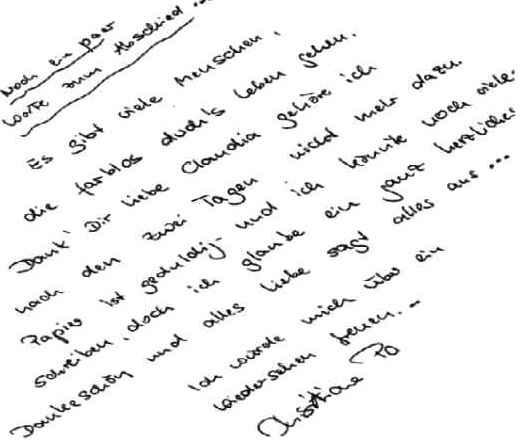 Noch ein paar
Worte zum Abschied ...
Es gibt viele Menschen,
die farblos durch's Leben gehen.
Dank' Dir liebe Claudia gehöre ich
nach den zwei Tagen nicht mehr dazu.
Papier ist geduldig - und ich könnte noch viele
schreiben, doch ich glaube ein ganz herzliches
Dankeschön und alles liebe sagt alles aus ...
Ich würde mich über ein
Wiedersehen freuen...
Christiane